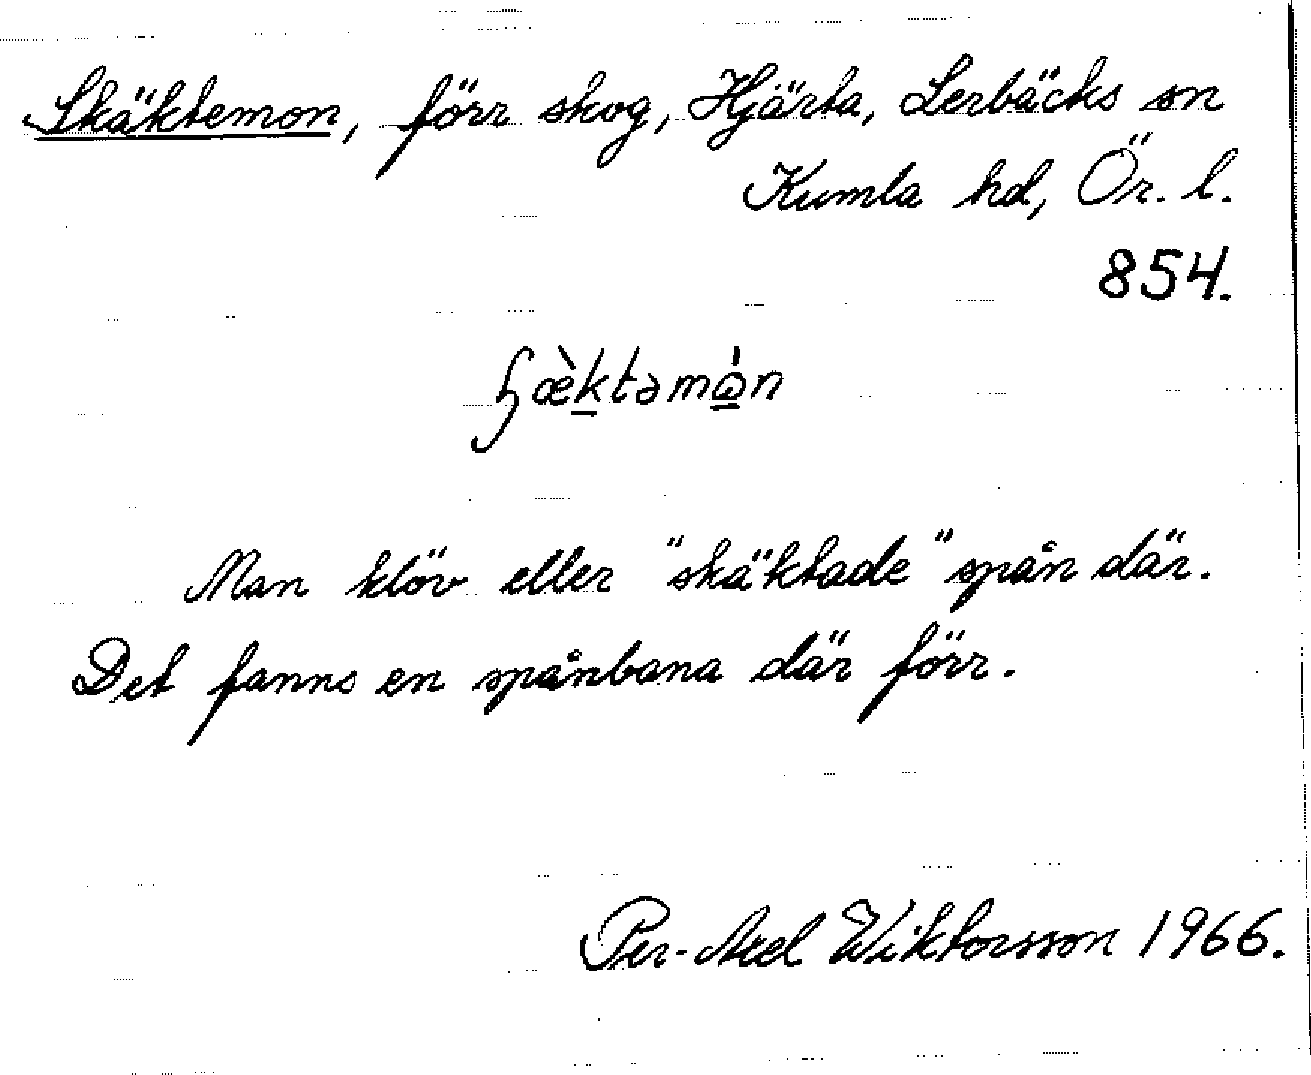 Skäktemon, förr skog, Hjärta, Lerbäcks sn
Kumla hd, Ör. l.
854.
ɧæ̀ktəmɷ̀n
Man klöv eller "skäktade" spån där.
Det fanns en spånbana där förr.
Per-Axel Wiktorsson 1966.